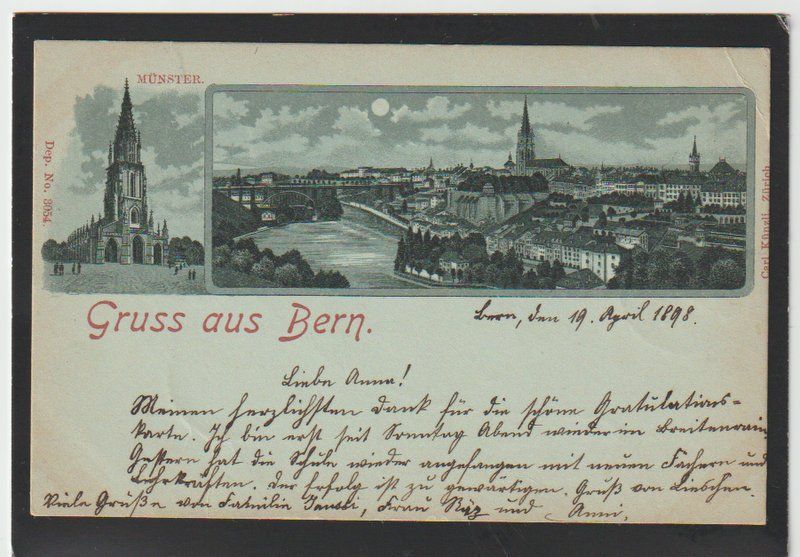 MÜNSTER.
Dep. No. 3054.
Carl Künzli, Zürich
Gruss aus Bern.
Bern, den 19. April 1898.
Liebe Anna!
Meinen herzlichsten Dank für die schöne Gratulations=
karte. Ich bin erst seit Sonntag Abend wieder im Breitenrain
Gestern hat die Schule wieder angefangen mit neuen Fächern und
Lehrkräften. Der Erfolg ist zu gewärtigen. Gruß von Lieschen.
Viele Grüße von Familie Frau und Anni.